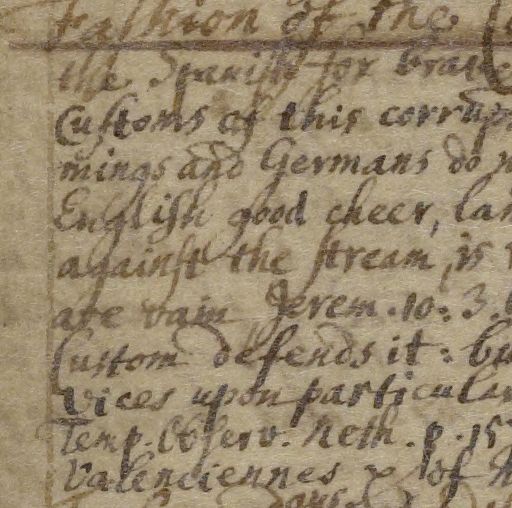 Fashion of the
the Spanish for brave
Customs of this corrup
mings and Germans do n
English good cheer, lan
against the stream, is
are vain Jerem. 10: 3.
Custom defends it: bu
vices upon particular
Temp. Observ. Neth. p. 15
Valenciennes of
days